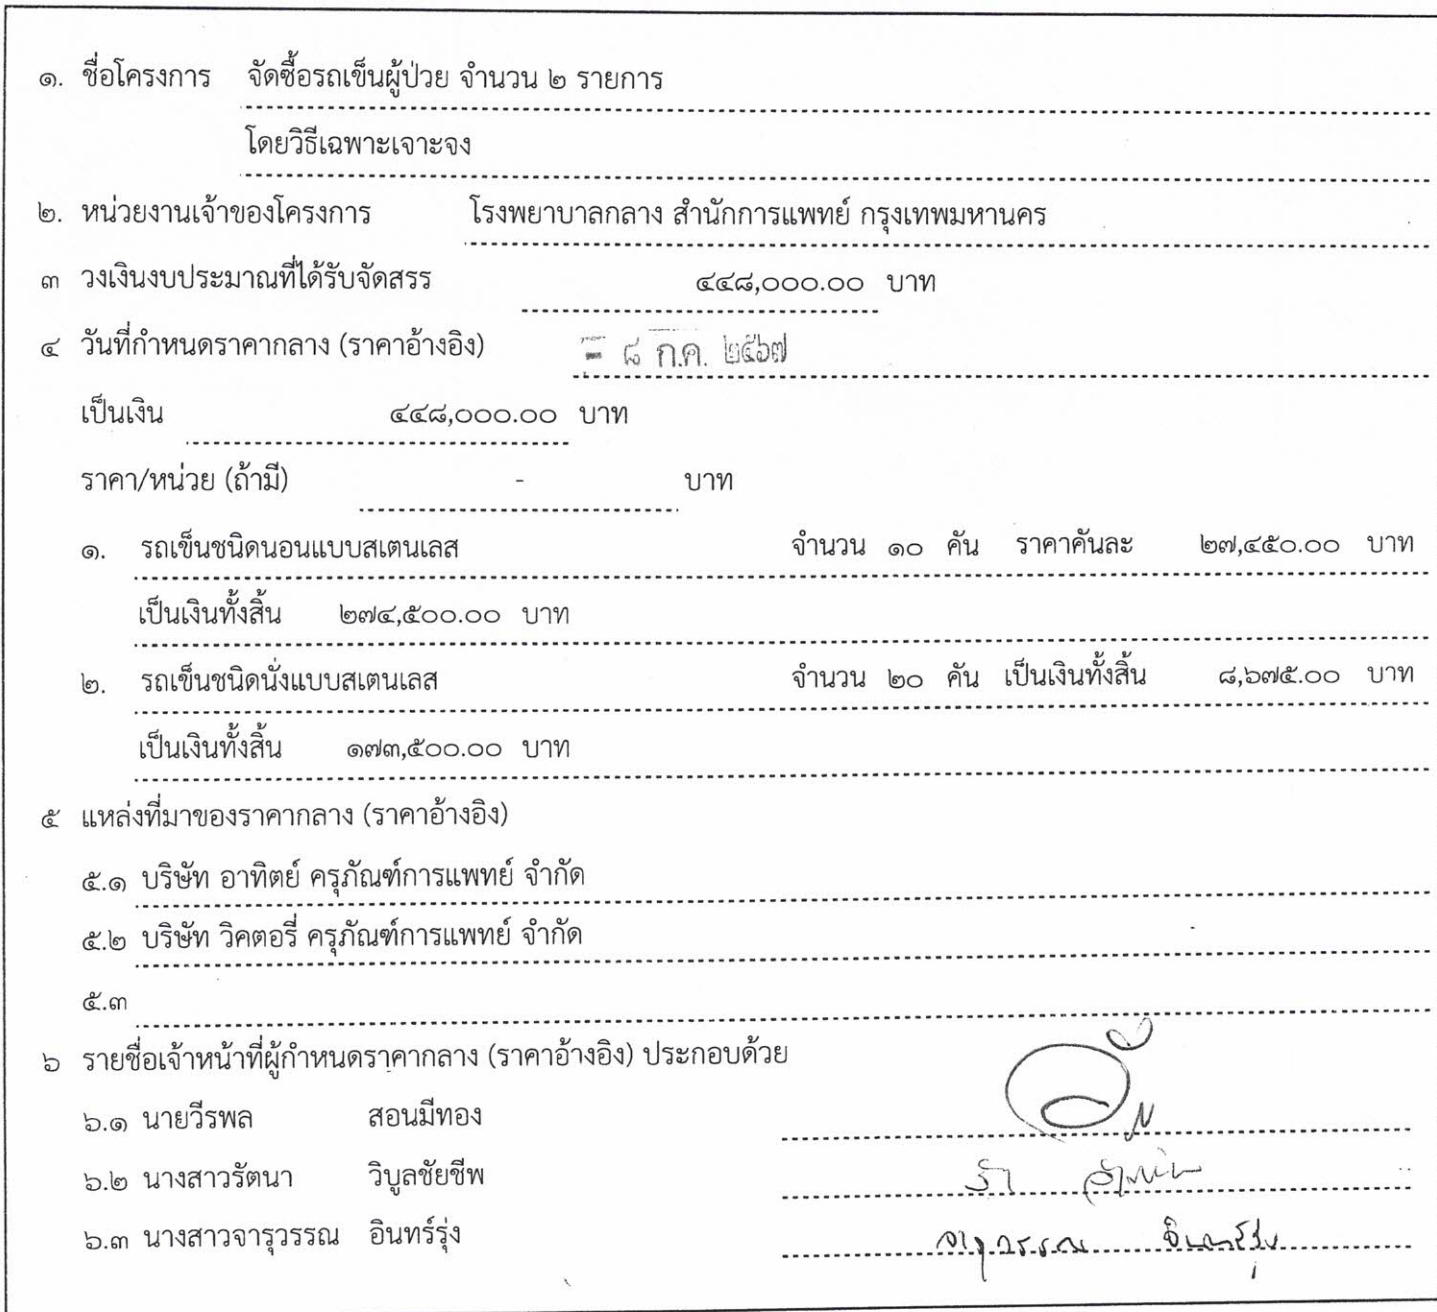 ๑. ชื่อโครงการ จัดซื้อรถเข็นผู้ป่วย จำนวน ๒ รายการ
โดยวิธีเฉพาะเจาะจง
๒. หน่วยงานเจ้าของโครงการ โรงพยาบาลกลาง สำนักการแพทย์ กรุงเทพมหานคร
๓ วงเงินงบประมาณที่ได้รับจัดสรร ๔๔๘,๐๐๐.๐๐ บาท
๔ วันที่กำหนดราคากลาง (ราคาอ้างอิง) - ๘ ก.ค. ๒๕๖๗
เป็นเงิน ๔๔๘,๐๐๐.๐๐ บาท
ราคา/หน่วย (ถ้ามี) - บาท
๑. รถเข็นชนิดนอนแบบสเตนเลส จำนวน ๑๐ คัน ราคาคันละ ๒๗,๔๕๐.๐๐ บาท
เป็นเงินทั้งสิ้น ๒๗๔,๕๐๐.๐๐ บาท
๒. รถเข็นชนิดนั่งแบบสเตนเลส จำนวน ๒๐ คัน เป็นเงินทั้งสิ้น ๘,๖๗๕.๐๐ บาท
เป็นเงินทั้งสิ้น ๑๗๓,๕๐๐.๐๐ บาท
๕ แหล่งที่มาของราคากลาง (ราคาอ้างอิง)
๕.๑ บริษัท อาทิตย์ ครุภัณฑ์การแพทย์ จำกัด
๕.๒ บริษัท วิคตอรี่ ครุภัณฑ์การแพทย์ จำกัด
๕.๓
๖ รายชื่อเจ้าหน้าที่ผู้กำหนดราคากลาง (ราคาอ้างอิง) ประกอบด้วย
๖.๑ นายวีรพล สอนมีทอง
๖.๒ นางสาวรัตนา วิบูลชัยชีพ
๖.๓ นางสาวจารุวรรณ อินทร์รุ่ง จารุวรรณ อินทร์รุ่ง